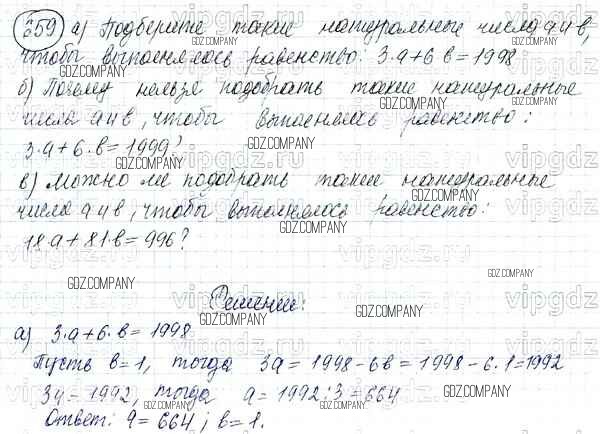 659 а) Подберите такие натуральные числа а и в,
чтобы выполнялось равенство: 3·а+6·в=1998
б) Почему нельзя подобрать такие натуральные
числа а и в, чтобы выполнялось равенство:
3·а+6·в=1999?
в) Можно ли подобрать такие натуральные
числа а и в, чтобы выполнялось равенство:
18·а+81·в=996?
Решение:
а) 3·а+6·в=1998
Пусть в=1, тогда 3а=1998-6в=1998-6·1=1992
3а=1992, тогда а=1992:3=664
Ответ: а=664; в=1.
GDZ.COMPANY
vipgdz.ru